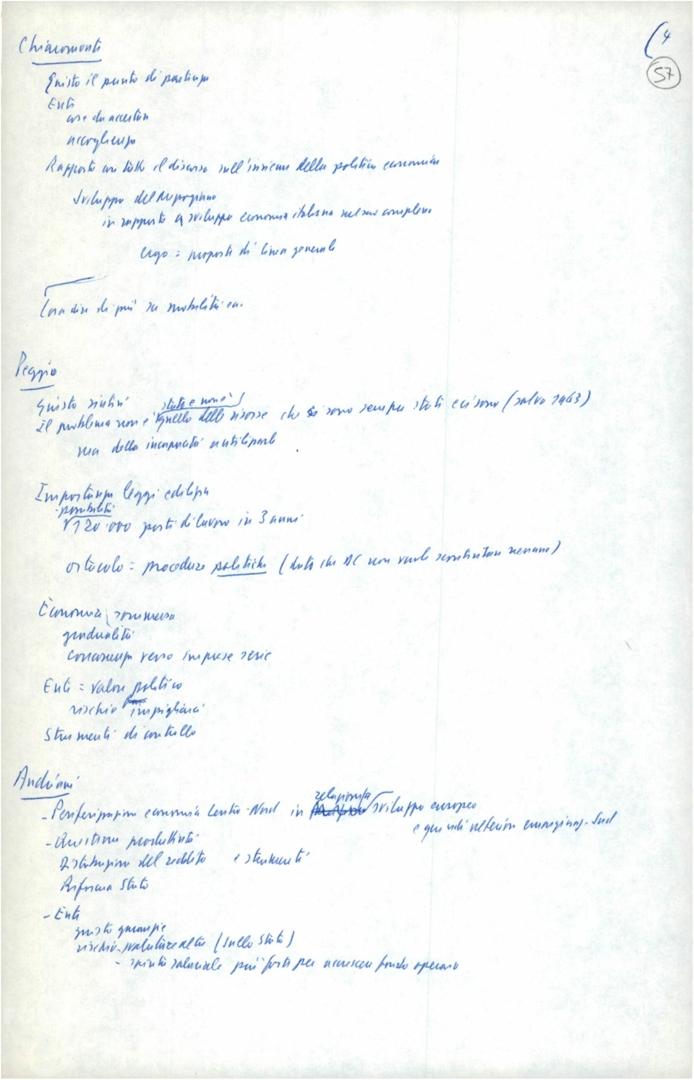 (4
57
Chiaromonte
Giusto il punto di partenza
Enti
cose da accertare
accoglienza
Rapporto con tutto il discorso sull'insieme della politica economica
Sviluppo del Mezzogiorno
in rapporto a sviluppo economia italiana nel suo complesso
ergo = proposte di linea generale
Cosa dire di più su mobilità ecc.
Peggio
Giusto
state e non è
Il problema non è quello delle risorse che ci sono sempre state e ci sono (salvo 1963)
ma della incapacità a utilizzarle
Importanza leggi edilizia
possibilità
120.000 posti di lavoro in 3 anni
ostacolo = procedure politiche (dato che DC non vuole)
Economia sommersa
gradualità
verso imprese serie
Enti = valore politico
rischio impigliarci
Strumenti di controllo
Andriani
relazione a
- economia Centro-Nord in sviluppo europeo
e quindi ulteriore Sud
- Questione produttività
Distribuzione del reddito e strumenti
Riforma Stato
- Enti
giuste garanzie
rischio (sullo Stato)
- spinta salariale più forte per accrescere fondo operaio